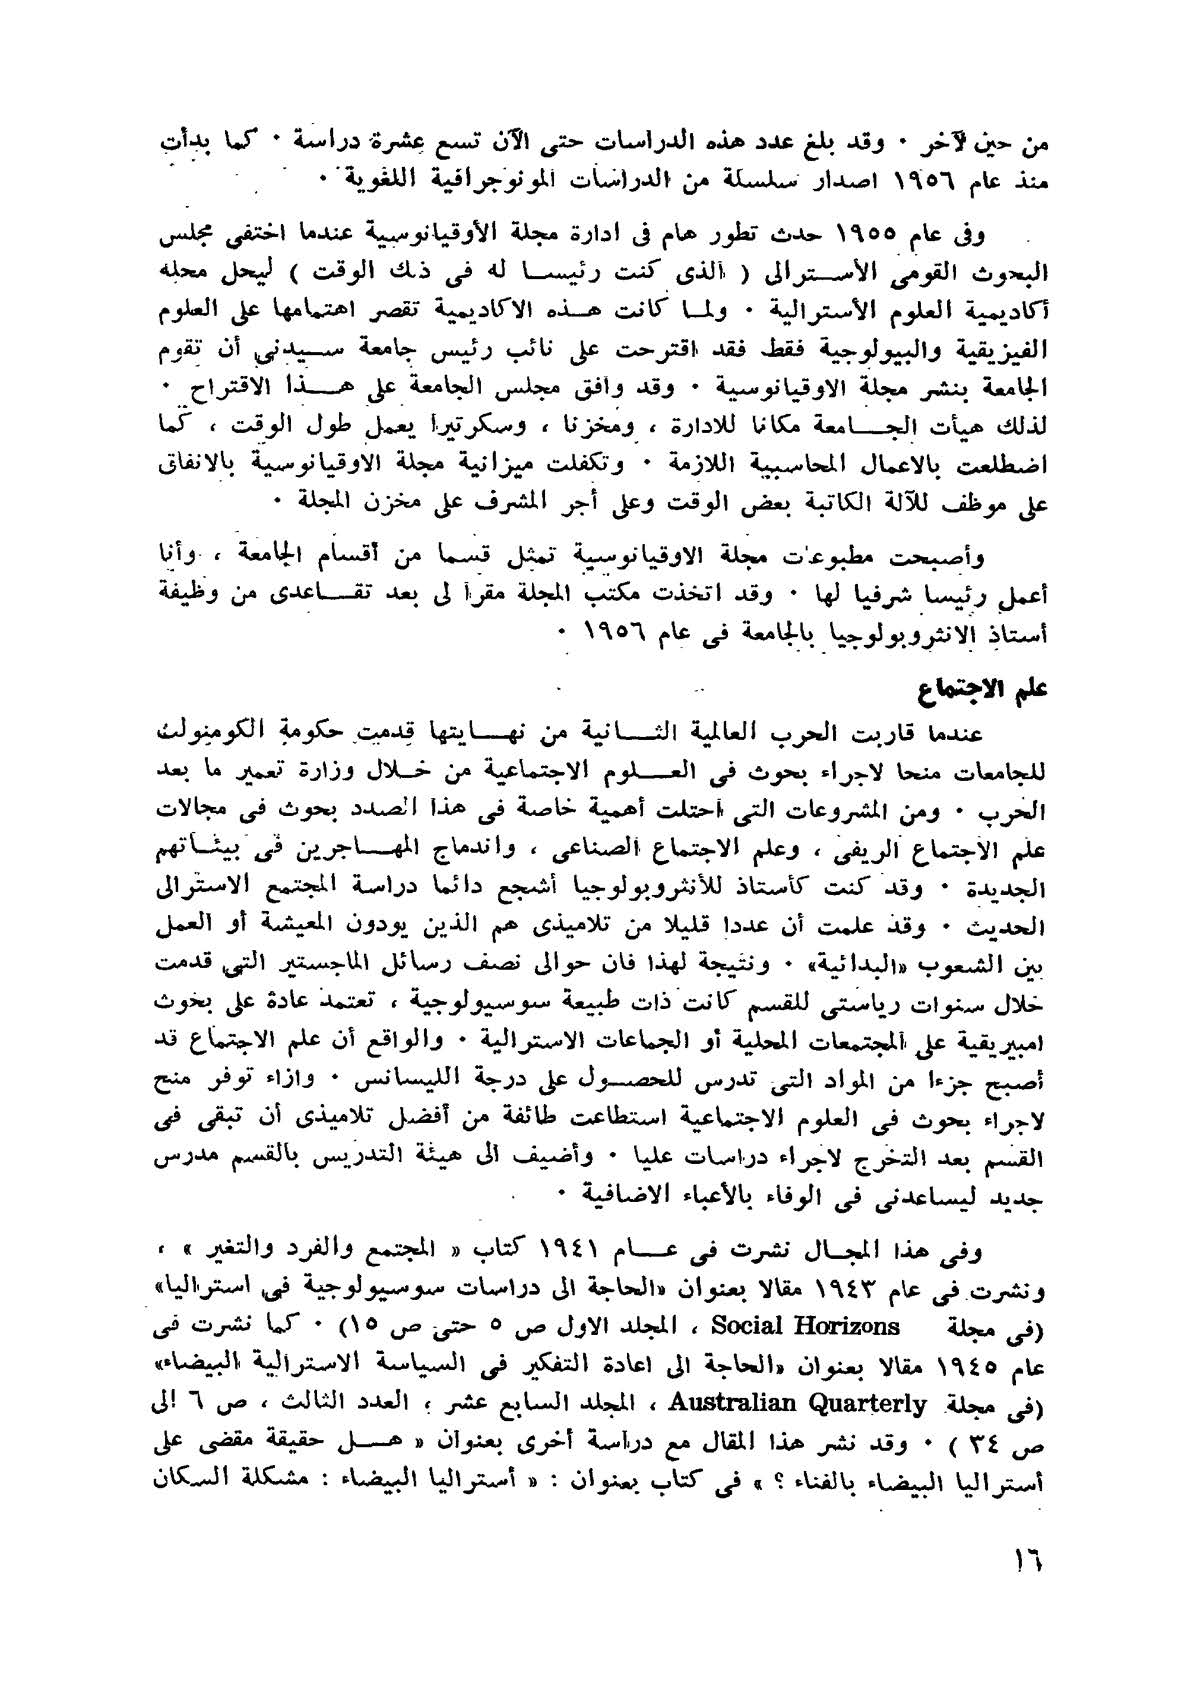 من حين لآخر ٠ وقد بلغ عدد هذه الدراسات حتى الآن تسع عشرة دراسة ٠ كما بدأت
منذ عام ١٩٥٦ اصدار سلسلة من الدراسات المونوجرافية اللغوية ٠
وفى عام ١٩٥٥ حدث تطور هام فى ادارة مجلة الأوقيانوسية عندما اختفى مجلس
البحوث القومى الأسترالى ( الذى كنت رئيسا له فى ذلك الوقت ) ليحل محله
أكاديمية العلوم الأسترالية ٠ ولما كانت هذه الاكاديمية تقصر اهتمامها على العلوم
الفيزيقية والبيولوجية فقط فقد اقترحت على نائب رئيس جامعة سيدنى أن تقوم
الجامعة بنشر مجلة الاوقيانوسية ٠ وقد وافق مجلس الجامعة على هذا الاقتراح ٠
لذلك هيأت الجامعة مكانا للادارة ، ومخزنا ، وسكرتيرا يعمل طول الوقت ، كما
اضطلعت بالاعمال المحاسبية اللازمة ٠ وتكفلت ميزانية مجلة الاوقيانوسية بالانفاق
على موظف للآلة الكاتبة بعض الوقت وعلى أجر المشرف على مخزن المجلة ٠
وأصبحت مطبوعات مجلة الاوقيانوسية تمثل قسما من أقسام الجامعة ، وأنا
أعمل رئيسا شرفيا لها ٠ وقد اتخذت مكتب المجلة مقرا لى بعد تقاعدى من وظيفة
أستاذ الانثروبولوجيا بالجامعة فى عام ١٩٥٦ ٠
علم الاجتماع
عندما قاربت الحرب العالمية الثانية من نهايتها قدمت حكومة الكومنولث
للجامعات منحا لاجراء بحوث فى العلوم الاجتماعية من خلال وزارة تعمير ما بعد
الحرب ٠ ومن المشروعات التى احتلت أهمية خاصة فى هذا الصدد بحوث فى مجالات
علم الاجتماع الريفى ، وعلم الاجتماع الصناعى ، واندماج المهاجرين فى بيئاتهم
الجديدة ٠ وقد كنت كأستاذ للأنثروبولوجيا أشجع دائما دراسة المجتمع الاسترالى
الحديث ٠ وقد علمت أن عددا قليلا من تلاميذى هم الذين يودون المعيشة أو العمل
بين الشعوب «البدائية» ٠ ونتيجة لهذا فان حوالى نصف رسائل الماجستير التى قدمت
خلال سنوات رياستى للقسم كانت ذات طبيعة سوسيولوجية ، تعتمد عادة على بحوث
امبيريقية على المجتمعات المحلية أو الجماعات الاسترالية ٠ والواقع أن علم الاجتماع قد
أصبح جزءا من المواد التى تدرس للحصول على درجة الليسانس ٠ وازاء توفر منح
لاجراء بحوث فى العلوم الاجتماعية استطاعت طائفة من أفضل تلاميذى أن تبقى فى
القسم بعد التخرج لاجراء دراسات عليا ٠ وأضيف الى هيئة التدريس بالقسم مدرس
جديد ليساعدنى فى الوفاء بالأعباء الاضافية ٠
وفى هذا المجال نشرت فى عام ١٩٤١ كتاب « المجتمع والفرد والتغير » ،
ونشرت فى عام ١٩٤٣ مقالا بعنوان «الحاجة الى دراسات سوسيولوجية فى استراليا»
(فى مجلة Social Horizons ، المجلد الاول ص ٥ حتى ص ١٥) ٠ كما نشرت فى
عام ١٩٤٥ مقالا بعنوان «الحاجة الى اعادة التفكير فى السياسة الاسترالية البيضاء»
(فى مجلة Australian Quarterly ، المجلد السابع عشر ، العدد الثالث ، ص ٦ الى
ص ٣٤ ) ٠ وقد نشر هذا المقال مع دراسة أخرى بعنوان « هل حقيقة مقضى على
أستراليا البيضاء بالفناء ؟ » فى كتاب بعنوان : « أستراليا البيضاء : مشكلة السكان
١٦